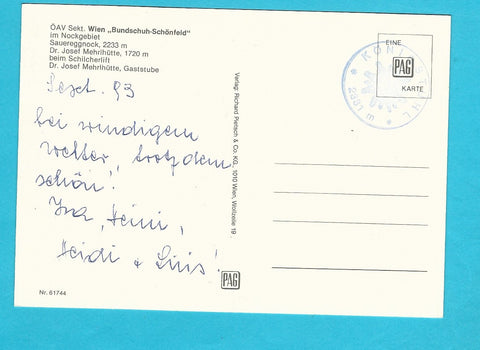 ÖAV Sekt. Wien „Bundschuh-Schönfeld"
im Nockgebiet
Sauereggnock, 2233 m
Dr. Josef Mehrlhütte, 1720 m
beim Schilcherlift
Dr. Josef Mehrlhütte, Gaststube
Sept. 93
bei windigem
Wetter, trotzdem
schön!
Iva, Heini,
Heidi + Luis!
Nr. 61744
Verlag: Richard Pietsch & Co. KG., 1010 Wien, Wollzeile 19
PAG
KÖNIGSTUHL
2331 m
EINE
PAG
KARTE